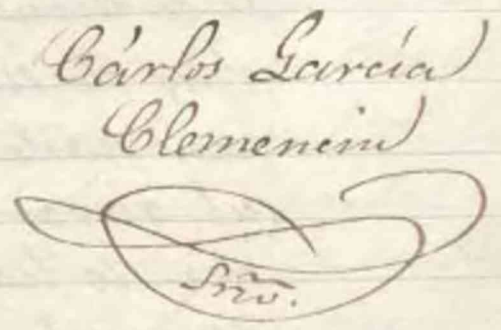 Cárlos García
Clemencin
Srio.